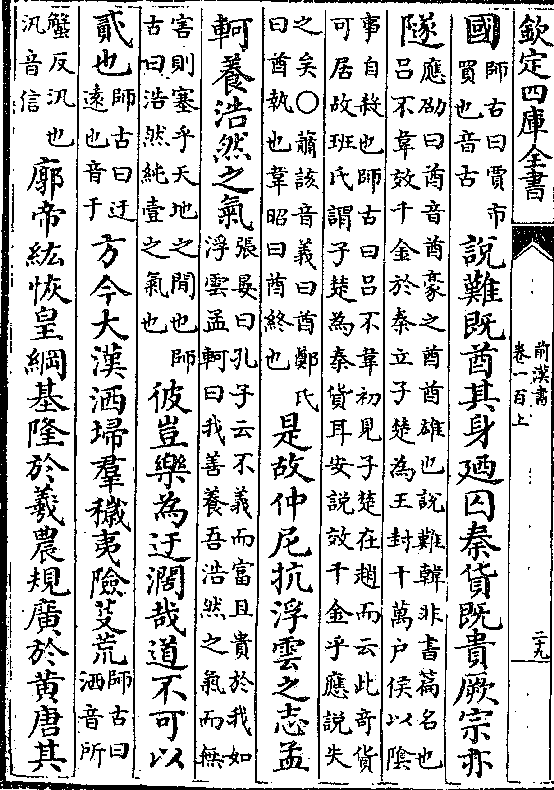 欽定四庫全書
前漢書
卷一百上
二十九
國師古曰賈市買也音古説難既酋其身廼囚秦貨既貴厥宗亦
隧應劭曰酋音酋豪之酋酋雄也説難韓非書篇名也吕不韋效千金於秦立子楚為王封十萬户侯以陰
事自殺也師古曰吕不韋初見子楚在趙而云此奇貨可居故班氏謂子楚為秦貨耳安説效千金乎應説失
之矣○蕭該音義曰酋鄭氏曰酋執也韋昭曰酋終也是故仲尼抗浮雲之志孟
軻養浩然之氣張晏曰孔子云不義而富且貴於我如浮雲孟軻曰我善養吾浩然之氣而無
害則塞乎天地之間也師古曰浩然純壹之氣也彼豈樂為迂濶哉道不可以
貳也師古曰迂遠也音于方今大漢洒埽羣穢夷險芟荒師古曰洒音所
蟹反汛也汛音信廓帝紘恢皇綱基隆於羲農規廣於黄唐其